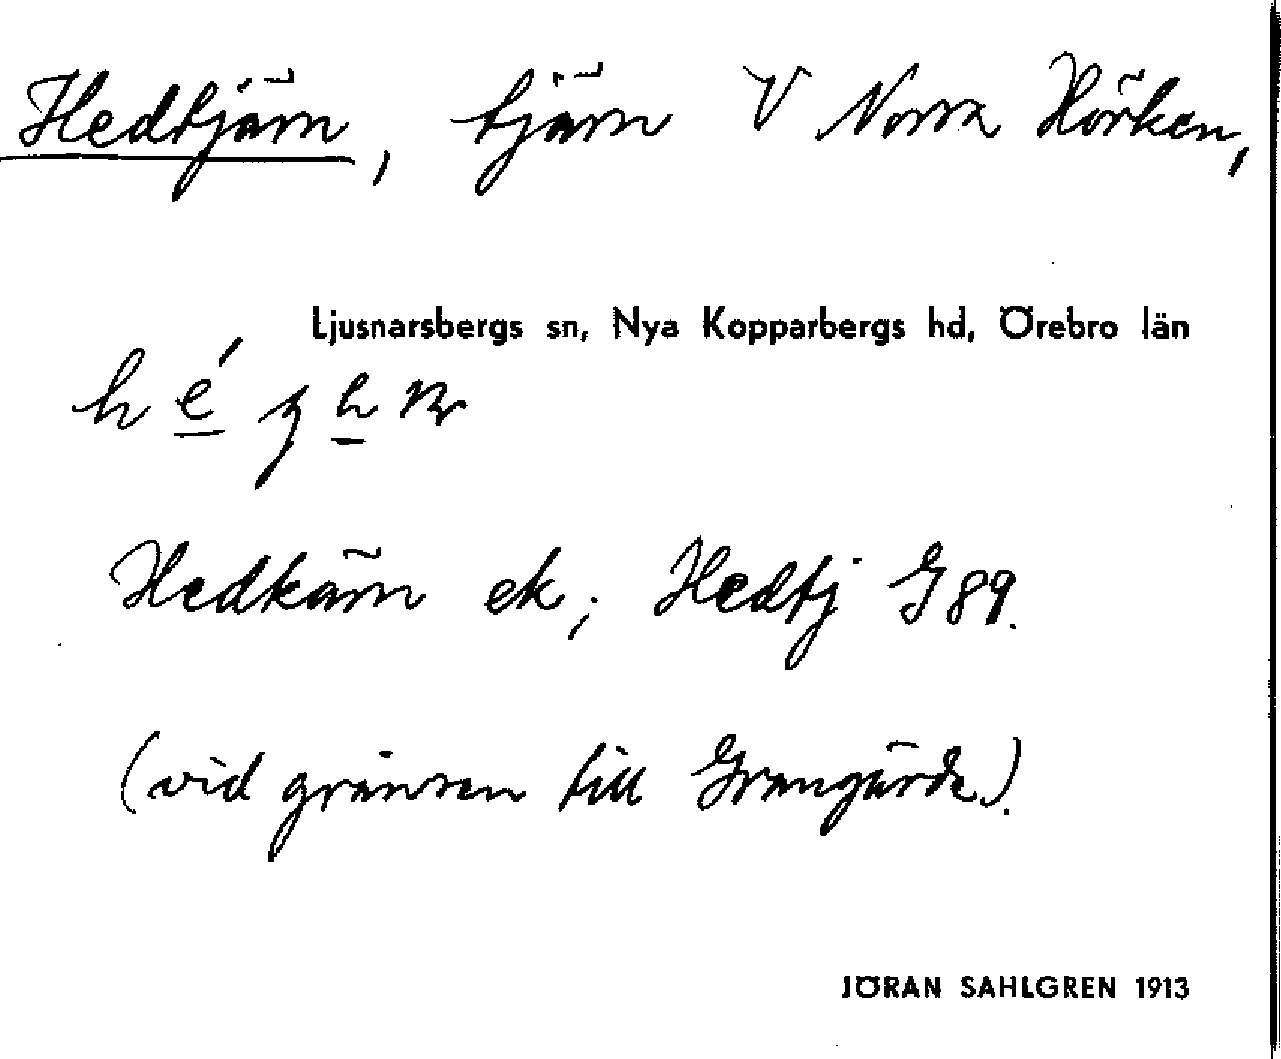 Hedtjärn, tjärn V Norra Hörken,
Ljusnarsbergs sn, Nya Kopparbergs hd, Örebro län
Hedkärn ek; Hedtj G 89.
(vid gränsen till Grangärde).
JÖRAN SAHLGREN 1913